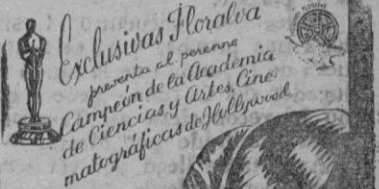 Exclusivas Floralva
presenta al perenne
Campeón de la Academia
de Ciencias y Artes Cine-
matográficas de Hollywood